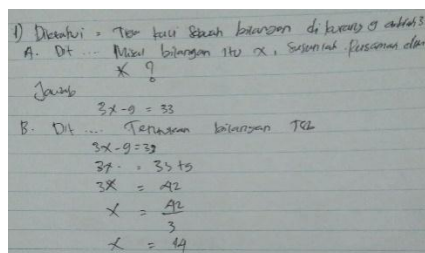 1) Diketahui = Tiga kali sebuah bilangan dikurang 9 adalah 3
A. Dit .... Misal bilangan itu x, susunlah Persamaan dlm
x ?
Jawab
3x - 9 = 33
B. Dit .... Tentukan bilangan Tsb
3x - 9 = 33
3x = 33 + 9
3x = 42
x = 42
3
x = 14